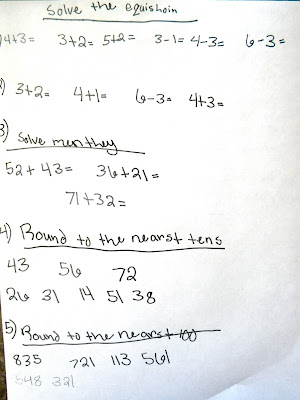 Solve the equishoin
) 4+3= 3+2= 5+2= 3-1= 4-3= 6-3=
) 3+2= 4+1= 6-3= 4+3=
3) Solve menthey
52+43= 36+21=
71+32=
4) Round to the nearst tens
43 56 72
26 31 14 51 38
5) Round to the nearst 100
835 721 113 561
648 321